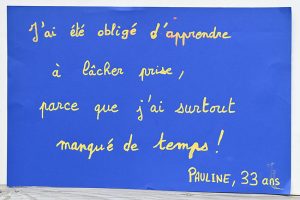 J'ai été obligé d'apprendre
à lâcher prise,
parce que j'ai surtout
manqué de temps !
PAULINE, 33 ans